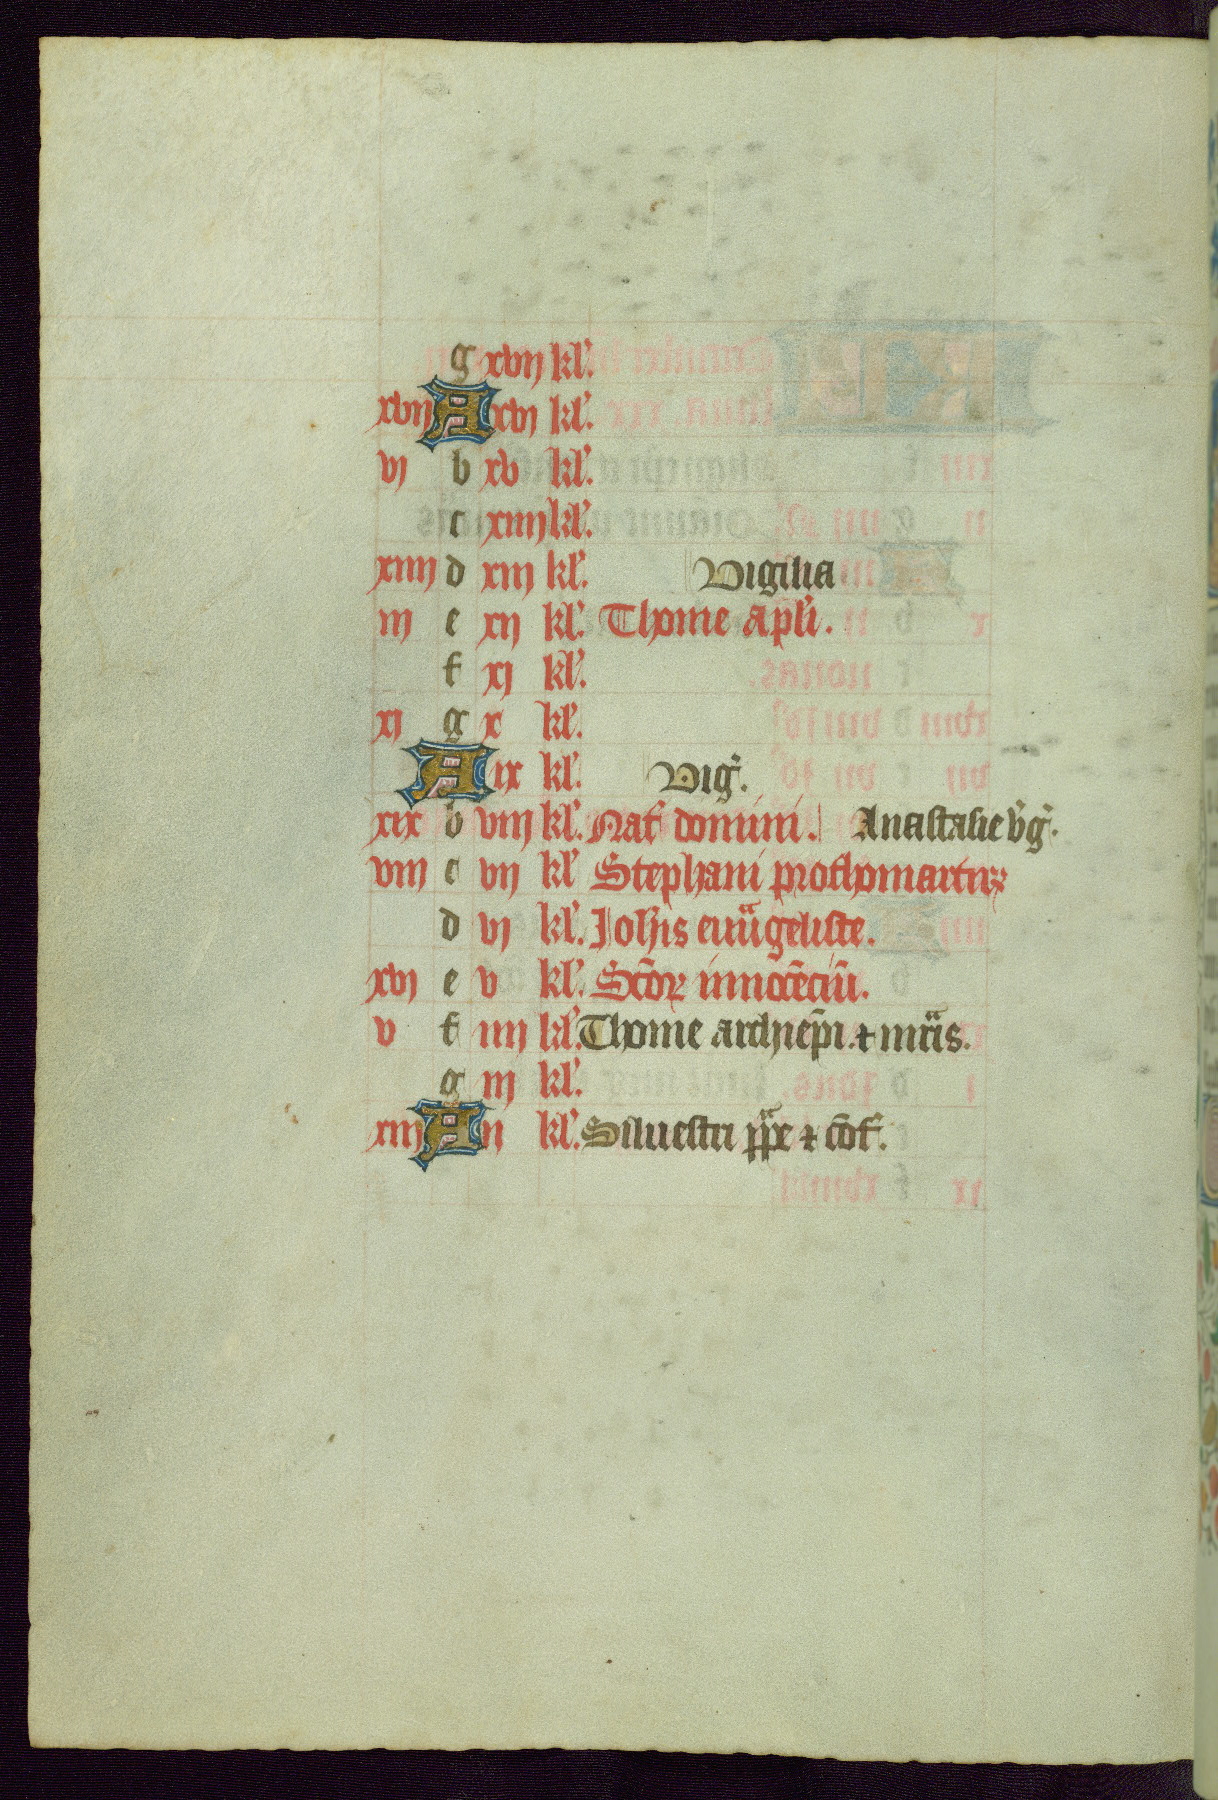 g xvij kl'.
xvij A xvj kl'.
vj b xv kl'.
c xiiij kl'.
xiiij d xiij kl'. Vigilia
iij e xij kl'. Thome apl'i.
f xj kl'.
xj g x kl'.
A ix kl'. Vig̃.
xix b viij kl'. Nat' domini. Anastasie v̓g̃.
viij c vij kl' Stephani prothomartir̕
d vj kl'. Joh̃is euu̅geliste.
xvj e v kl'. Sc̃oꝝ innocẽciũ.
v f iiij kl'. Thome archiep̃i. ⁊ mr̅is.
g iij kl'.
xiij A ij kl'. Siluestri pp̅e ⁊ cõf'.